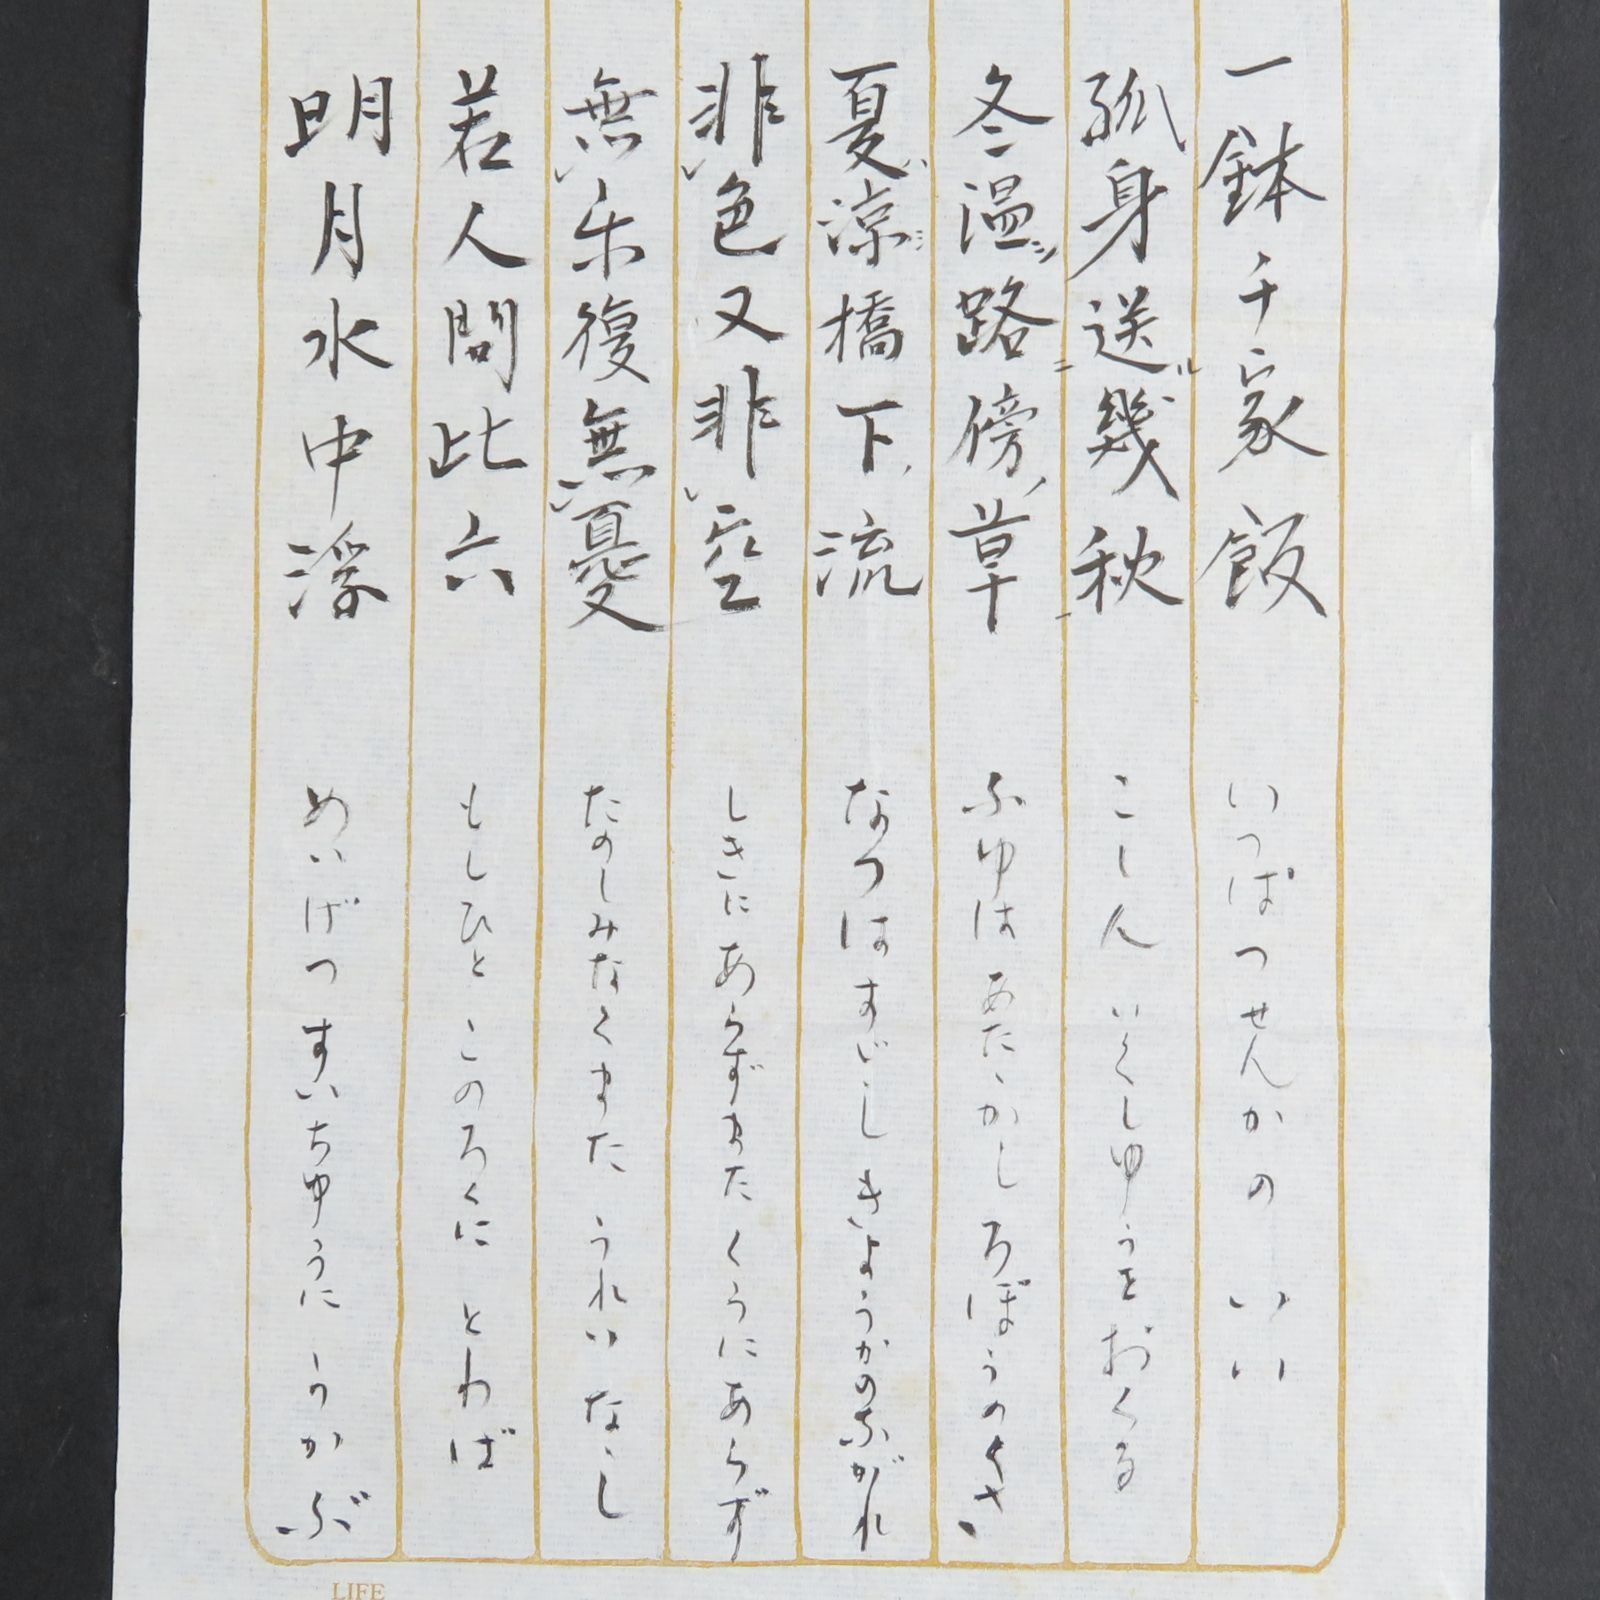 一鉢千家飯 いつぱつせんかの いい
孤身送幾秋 こしん いくしゆうをおくる
冬温路傍草 ふゆは あたゝかし ろぼうのくさ
夏涼橋下流 なつはすゞし きようかのながれ
非色又非空 しきにあらずまた くうにあらず
無乐復無憂 たのしみなくまた うれい なし
若人問比六 もしひと このろくに とわば
明月水中浮 めいげつ すいちゆうに うかぶ
LIFE